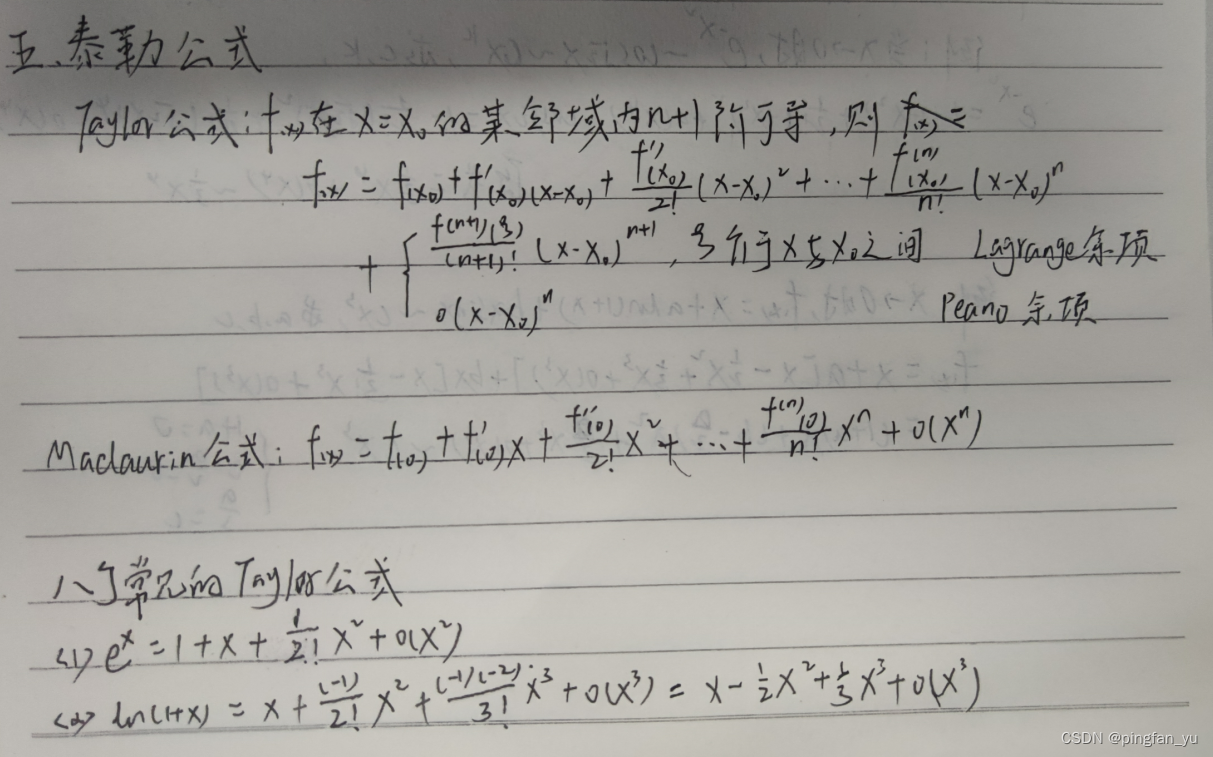 五、泰勒公式
Taylor公式：f(x)在x=x₀的某邻域内n+1阶可导，则
f(x) = f(x₀) + f'(x₀)(x-x₀) + f''(x₀)/2! (x-x₀)² + … + f⁽ⁿ⁾(x₀)/n! (x-x₀)ⁿ
+ { f⁽ⁿ⁺¹⁾(ξ)/(n+1)! (x-x₀)ⁿ⁺¹, ξ介于x与x₀之间 Lagrange余项
o(x-x₀)ⁿ Peano余项
Maclaurin公式：f(x) = f(0) + f'(0)x + f''(0)/2! x² + … + f⁽ⁿ⁾(0)/n! xⁿ + o(xⁿ)
八个常见的Taylor公式
<1> eˣ = 1 + x + 1/2! x² + o(x²)
<2> ln(1+x) = x + (-1)/2! x² + (-1)(-2)/3! x³ + o(x³) = x - 1/2 x² + 1/3 x³ + o(x³)
CSDN @pingfan_yu